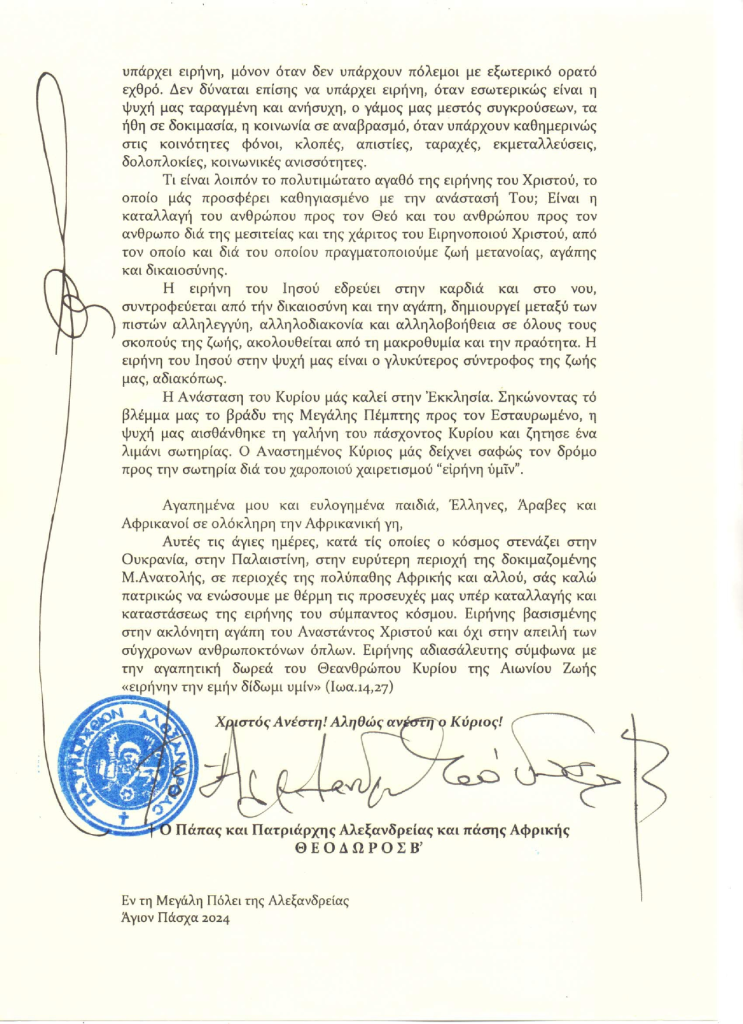 υπάρχει ειρήνη, μόνον όταν δεν υπάρχουν πόλεμοι με εξωτερικό ορατό
εχθρό. Δεν δύναται επίσης να υπάρχει ειρήνη, όταν εσωτερικώς είναι η
ψυχή μας ταραγμένη και ανήσυχη, ο γάμος μας μεστός συγκρούσεων, τα
ήθη σε δοκιμασία, η κοινωνία σε αναβρασμό, όταν υπάρχουν καθημερινώς
στις κοινότητες φόνοι, κλοπές, απιστίες, ταραχές, εκμεταλλεύσεις,
δολοπλοκίες, κοινωνικές ανισσότητες.
Τι είναι λοιπόν το πολυτιμώτατο αγαθό της ειρήνης του Χριστού, το
οποίο μάς προσφέρει καθηγιασμένο με την ανάστασή Του; Είναι η
καταλλαγή του ανθρώπου προς τον Θεό και του ανθρώπου προς τον
ανθρωπο διά της μεσιτείας και της χάριτος του Ειρηνοποιού Χριστού, από
τον οποίο και διά του οποίου πραγματοποιούμε ζωή μετανοίας, αγάπης
και δικαιοσύνης.
Η ειρήνη του Ιησού εδρεύει στην καρδιά και στο νου,
συντροφεύεται από τήν δικαιοσύνη και την αγάπη, δημιουργεί μεταξύ των
πιστών αλληλεγγύη, αλληλοδιακονία και αλληλοβοήθεια σε όλους τους
σκοπούς της ζωής, ακολουθείται από τη μακροθυμία και την πραότητα. Η
ειρήνη του Ιησού στην ψυχή μας είναι ο γλυκύτερος σύντροφος της ζωής
μας, αδιακόπως.
Η Ανάσταση του Κυρίου μάς καλεί στην Έκκλησία. Σηκώνοντας τό
βλέμμα μας το βράδυ της Μεγάλης Πέμπτης προς τον Εσταυρωμένο, η
ψυχή μας αισθάνθηκε τη γαλήνη του πάσχοντος Κυρίου και ζητησε ένα
λιμάνι σωτηρίας. Ο Αναστημένος Κύριος μάς δείχνει σαφώς τον δρόμο
προς την σωτηρία διά του χαροποιού χαιρετισμού “εἰρήνη ὑμῖν”.
Αγαπημένα μου και ευλογημένα παιδιά, Έλληνες, Άραβες και
Αφρικανοί σε ολόκληρη την Αφρικανική γη,
Αυτές τις άγιες ημέρες, κατά τίς οποίες ο κόσμος στενάζει στην
Ουκρανία, στην Παλαιστίνη, στην ευρύτερη περιοχή της δοκιμαζομένης
Μ.Ανατολής, σε περιοχές της πολύπαθης Αφρικής και αλλού, σάς καλώ
πατρικώς να ενώσουμε με θέρμη τις προσευχές μας υπέρ καταλλαγής και
καταστάσεως της ειρήνης του σύμπαντος κόσμου. Ειρήνης βασισμένης
στην ακλόνητη αγάπη του Αναστάντος Χριστού και όχι στην απειλή των
σύγχρονων ανθρωποκτόνων όπλων. Ειρήνης αδιασάλευτης σύμφωνα με
την αγαπητική δωρεά του Θεανθρώπου Κυρίου της Αιωνίου Ζωής
«ειρήνην την εμήν δίδωμι υμίν» (Ιωα.14,27)
Χριστός Ανέστη! Αληθώς ανέστη ο Κύριος!
ΠΑΤΡΙΑΡΧΕΙΟΝ ΑΛΕΞΑΝΔΡΕΙΑΣ
† Ο Πάπας και Πατριάρχης Αλεξανδρείας και πάσης Αφρικής
Θ Ε Ο Δ Ω Ρ Ο Σ Β’
Εν τη Μεγάλη Πόλει της Αλεξανδρείας
Άγιον Πάσχα 2024